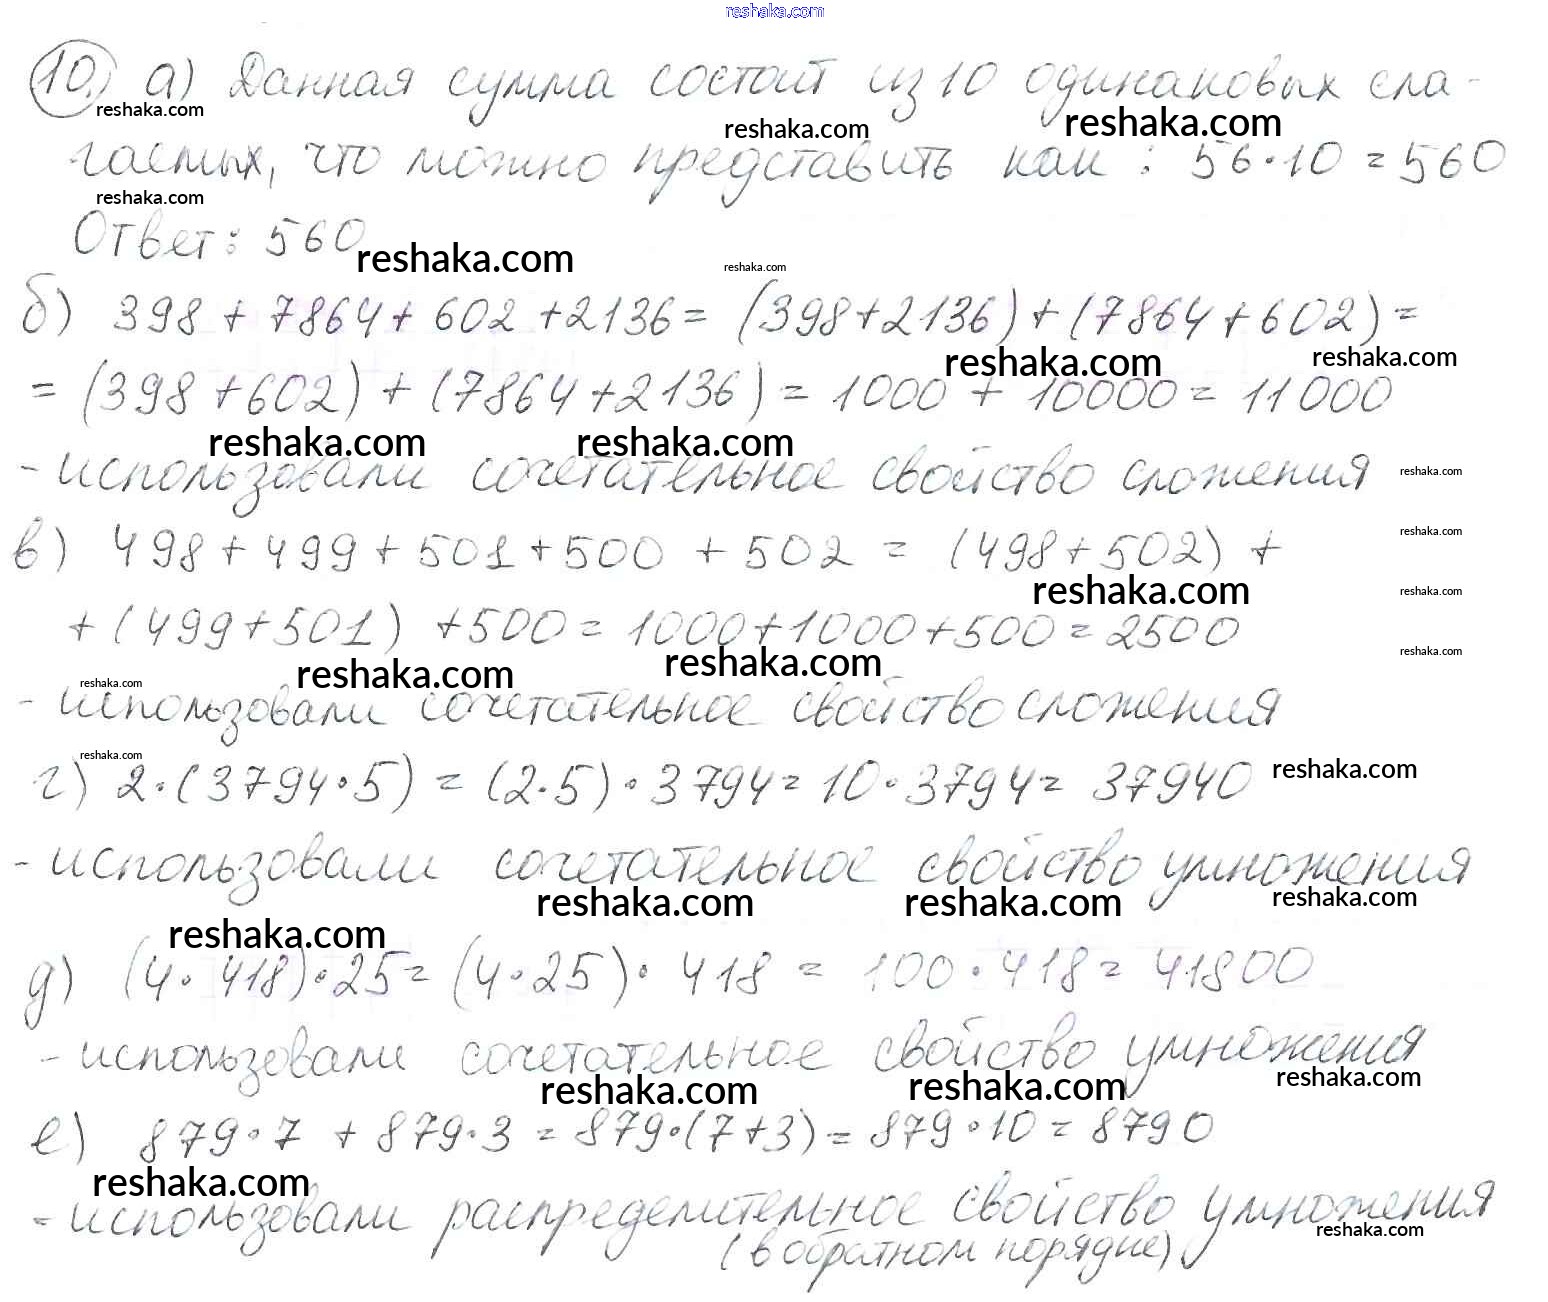 reshaka.com
10. а) Данная сумма состоит из 10 одинаковых сла-
reshaka.com reshaka.com reshaka.com
гаемых, что можно представить как : 56·10 = 560
reshaka.com
Ответ: 560
reshaka.com reshaka.com
б) 398 + 7864 + 602 + 2136 = (398+2136) + (7864+602) =
reshaka.com reshaka.com
= (398 + 602) + (7864 + 2136) = 1000 + 10000 = 11000
reshaka.com reshaka.com
- использовали сочетательное свойство сложения
reshaka.com
в) 498 + 499 + 501 + 500 + 502 = (498 + 502) +
reshaka.com
reshaka.com reshaka.com
+ (499 + 501) + 500 = 1000 + 1000 + 500 = 2500
reshaka.com
reshaka.com reshaka.com reshaka.com
- использовали сочетательное свойство сложения
reshaka.com
г) 2·(3794·5) = (2·5)·3794 = 10·3794 = 37940
reshaka.com
- использовали сочетательное свойство умножения
reshaka.com reshaka.com reshaka.com
reshaka.com
д) (4·418)·25 = (4·25)·418 = 100·418 = 41800
- использовали сочетательное свойство умножения
reshaka.com reshaka.com reshaka.com
е) 879·7 + 879·3 = 879·(7+3) = 879·10 = 8790
reshaka.com
- использовали распределительное свойство умножения
reshaka.com
(в обратном порядке)